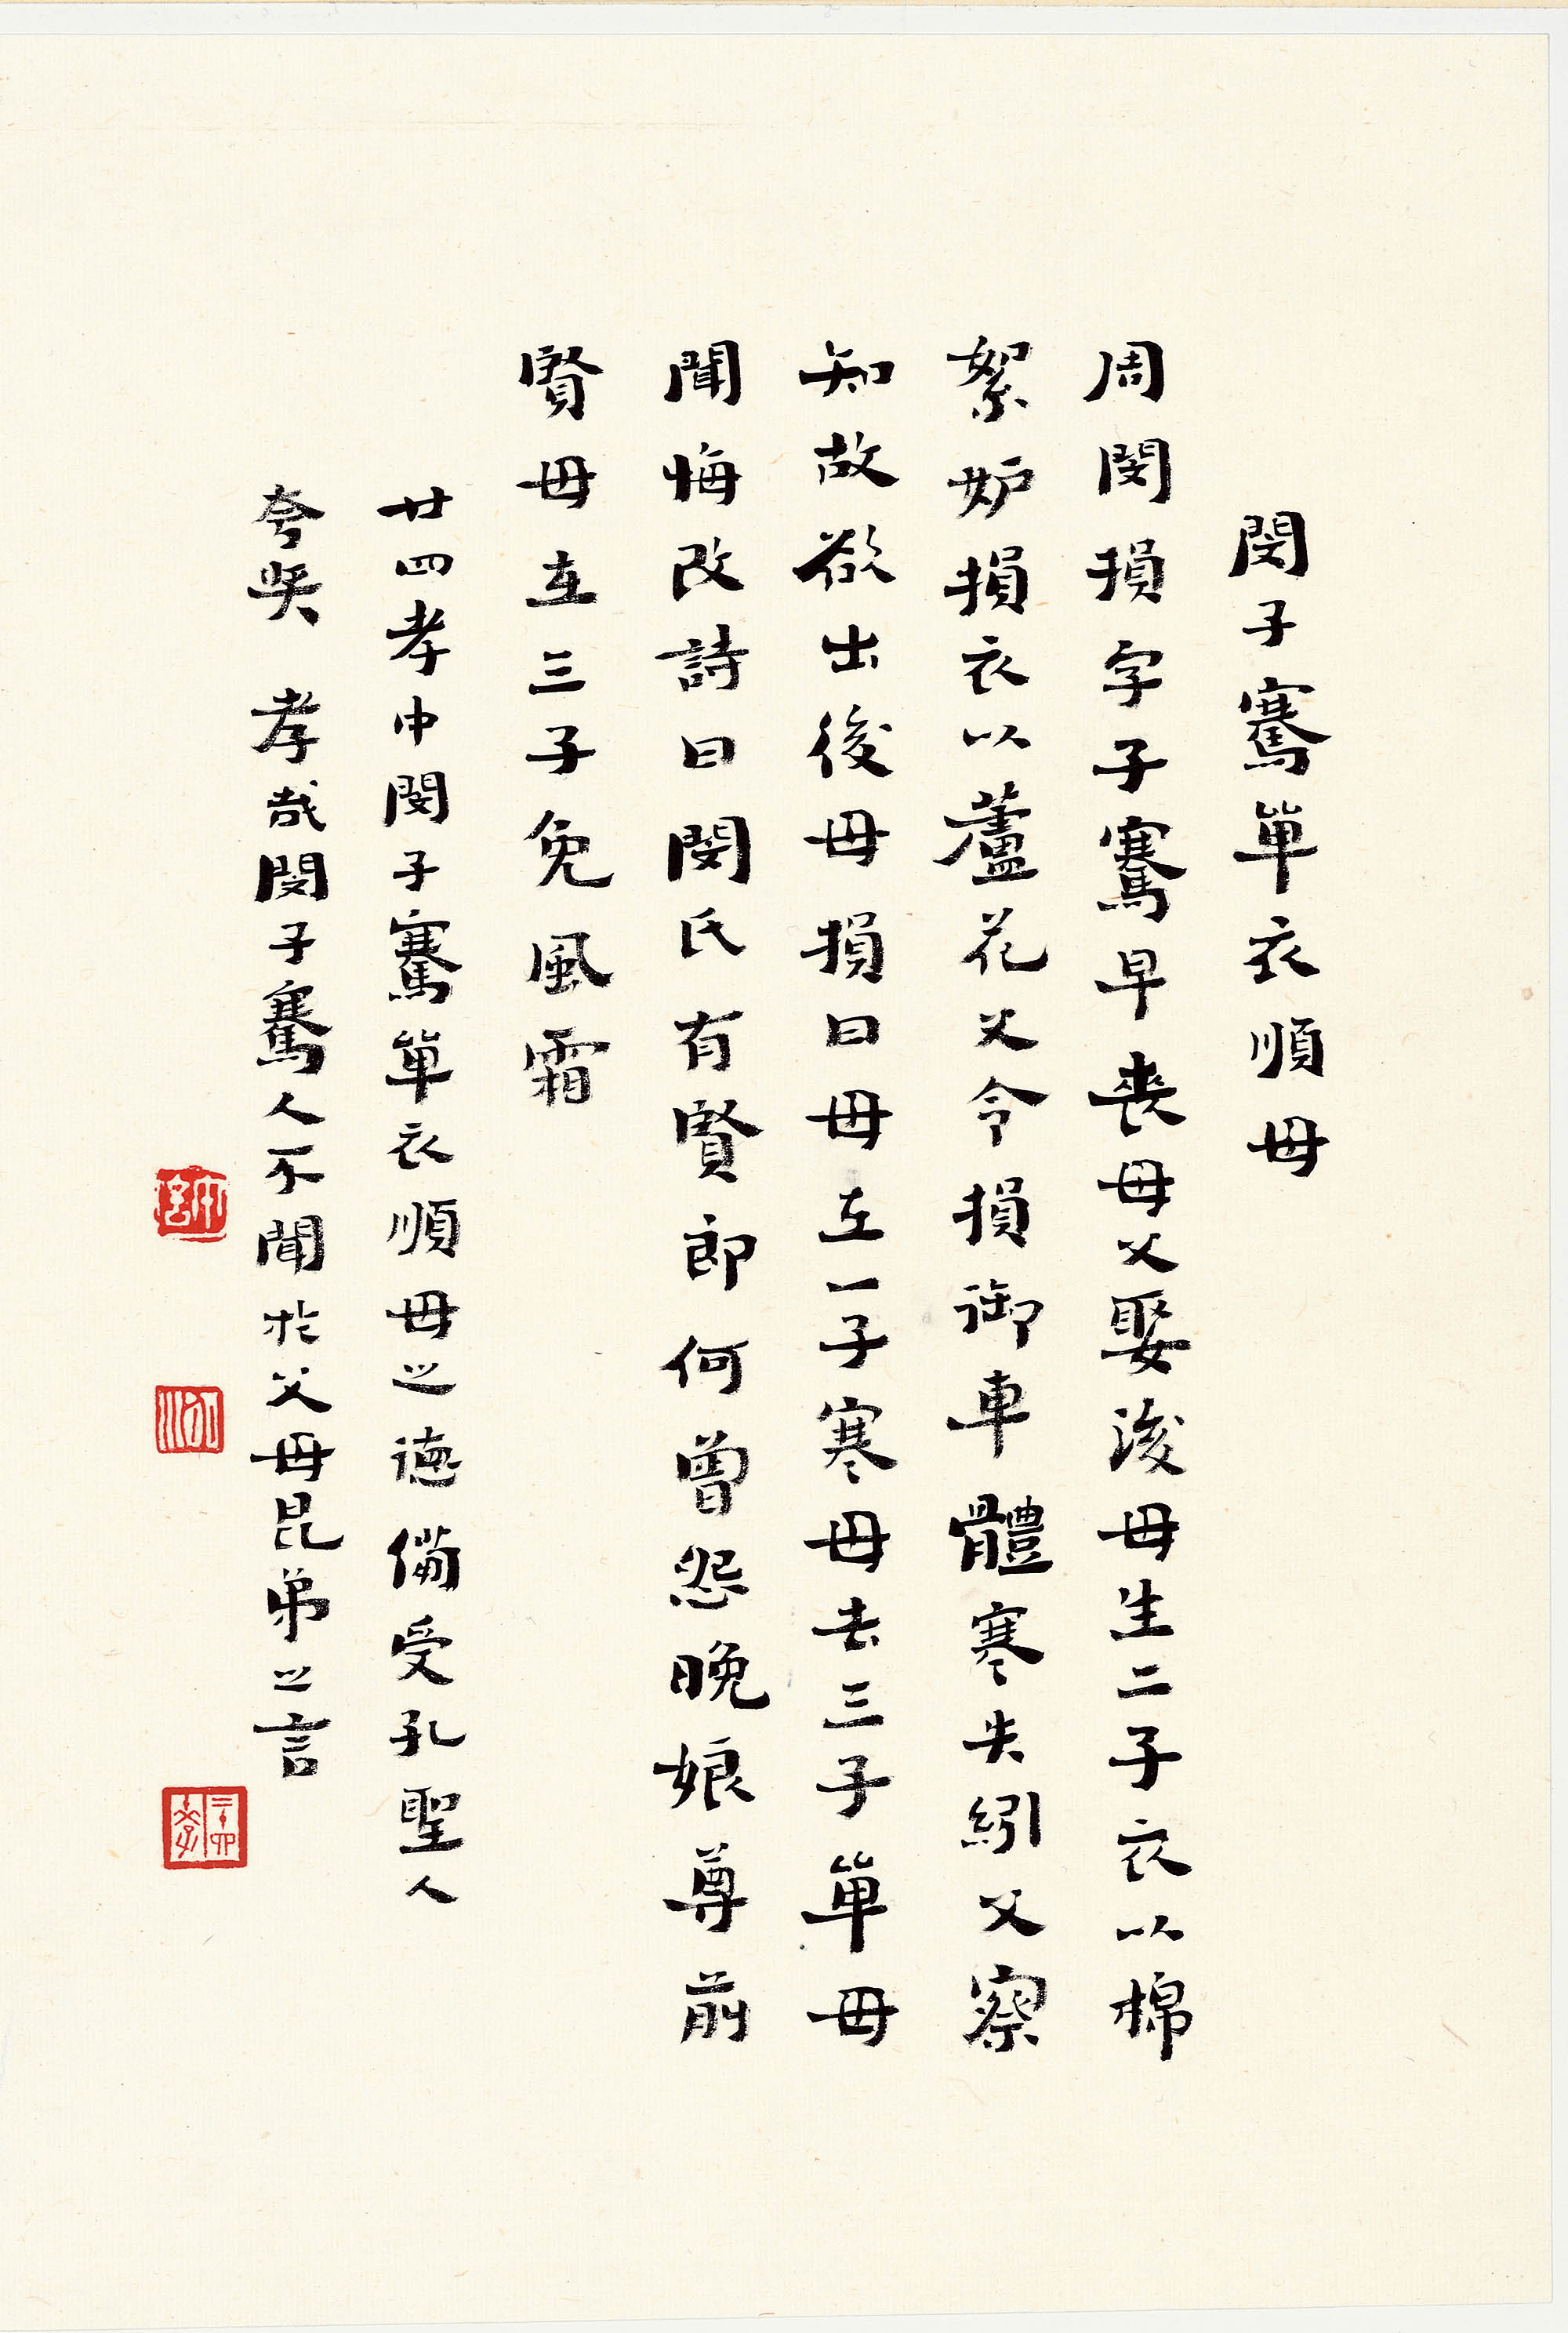 閔子騫單衣順母
周閔損字子騫早喪母父娶後母生二子衣以棉
絮妒損衣以蘆花父令損御車體寒失紖父察
知故欲出後母損曰母在一子寒母去三子單母
聞悔改詩曰閔氏有賢郎何曾怨晚娘尊前
賢母在三子免風霜
廿四孝中閔子騫單衣順母之德備受孔聖人
夸奖 孝哉閔子騫人不聞於父母昆弟之言
二十四孝